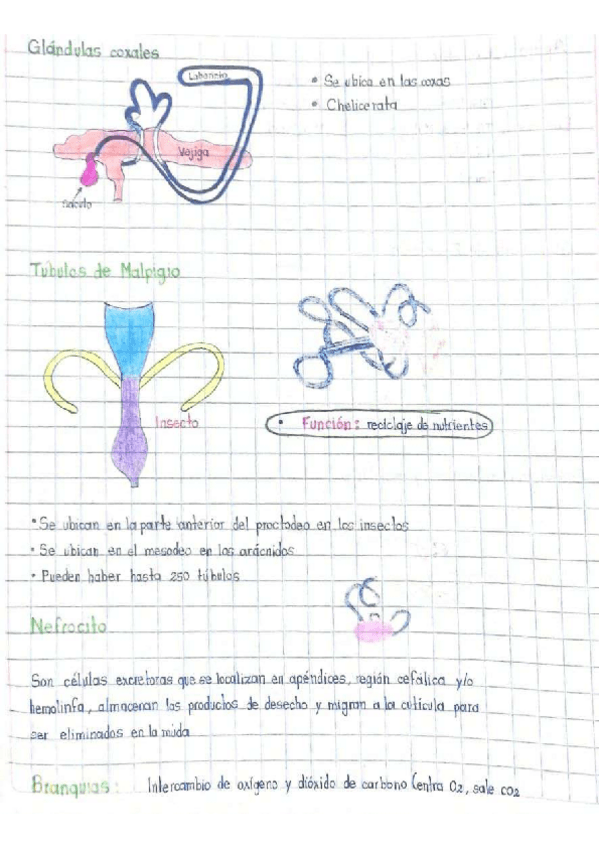 Glándulas coxales
Laberinto
• Se ubica en las coxas
• Chelicerata
Vejiga
Sáculo
Tubulos de Malpigio
Insecto
• Función: reciclaje de nutrientes
• Se ubican en la parte anterior del proctodeo en los insectos
• Se ubican en el mesodeo en los arácnidos
• Pueden haber hasta 250 túbulos
Nefrocito
Son células excretoras que se localizan en apéndices, región cefálica y/o
hemolinfa, almacenan los productos de desecho y migran a la cutícula para
ser eliminados en la muda
Branquias: Intercambio de oxígeno y dióxido de carbono (entra O2, sale CO2